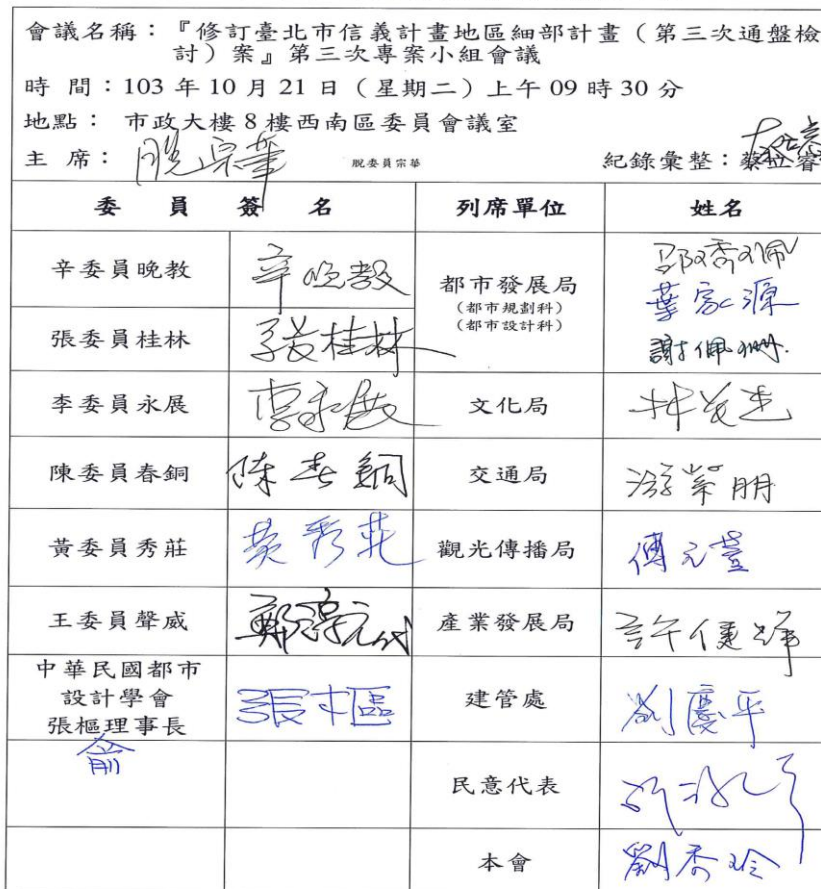 會議名稱：『修訂臺北市信義計畫地區細部計畫（第三次通盤檢
討）案』第三次專案小組會議
時 間：103 年 10 月 21 日（星期二）上午 09 時 30 分
地點： 市政大樓 8 樓西南區委員會議室
主 席： 脫宗華 脫委員宗華 紀錄彙整：蔡立睿
委 員 簽 名 列席單位 姓名
辛委員晚教 辛晚教 都市發展局
（都市規劃科）
（都市設計科）
邵琇珮
葉家源
謝佩珊
張委員桂林 張桂林
李委員永展 李永展 文化局
陳委員春銅 陳春銅 交通局
黃委員秀莊 黃秀莊 觀光傳播局
王委員聲威 產業發展局 許健輝
中華民國都市
設計學會
張樞理事長
張樞 建管處 劉慶平
俞
民意代表
本會 劉秀玲